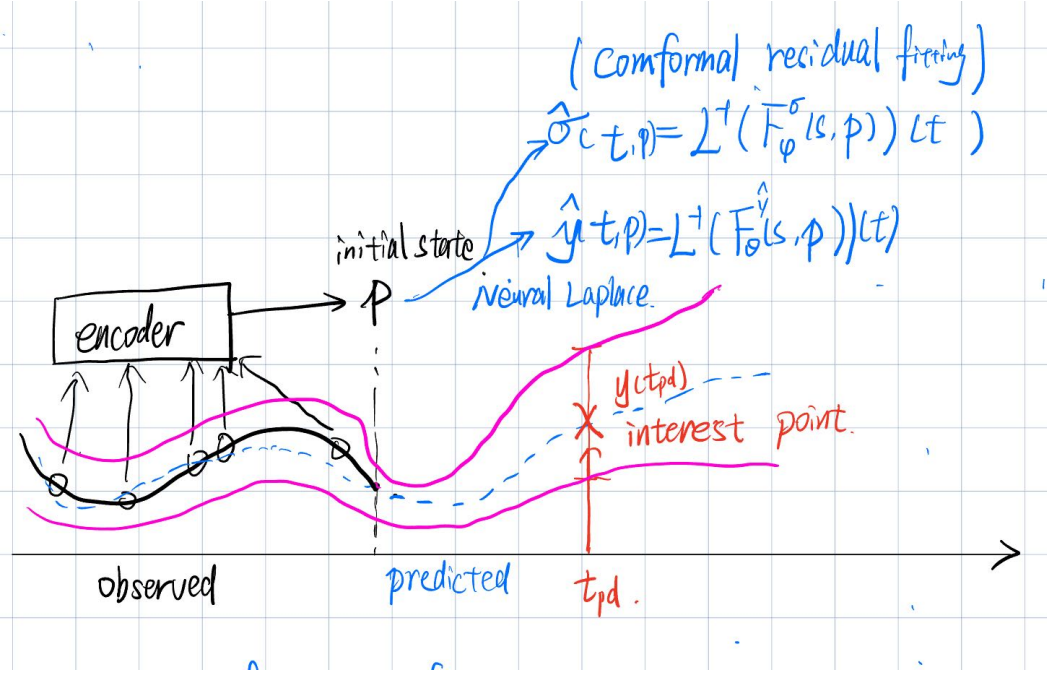 (Comformal residual fitting)
σ̂(t,p)=L⁻¹(F^σ_φ(s,p))(t)
ŷ(t,p)=L⁻¹(F^ŷ_θ(s,p))(t)
initial state
p
Neural Laplace.
encoder
y(tpd)
interest point.
observed
predicted
tpd.